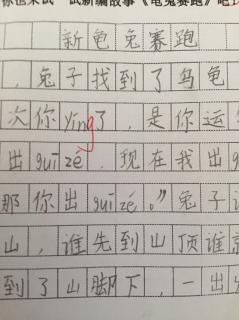 你也来试一试新编故事《龟兔赛跑》吧
新龟兔赛跑
，兔子找到了乌龟
次你yíng了，是你运
出guī zé，现在我出
那你出guī zé。”兔子
山，谁先到山顶谁
到了山脚下，一出